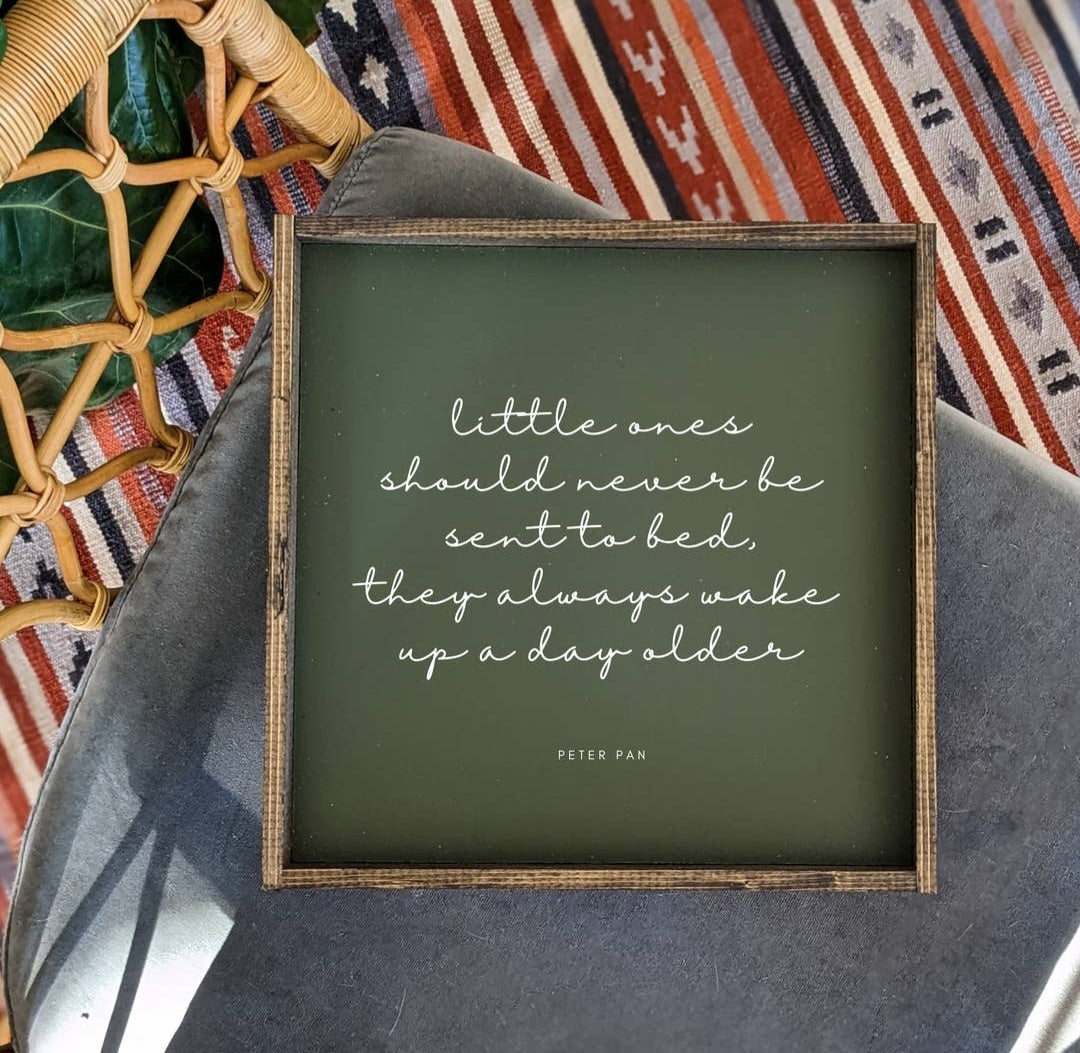 little ones
should never be
sent to bed,
they always wake
up a day older
PETER PAN